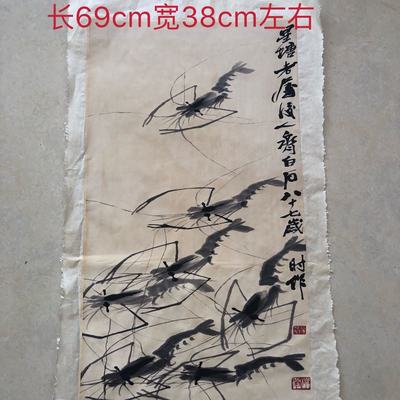 长69cm宽38cm左右
星塘老屋后人齐白石八十七岁
时作